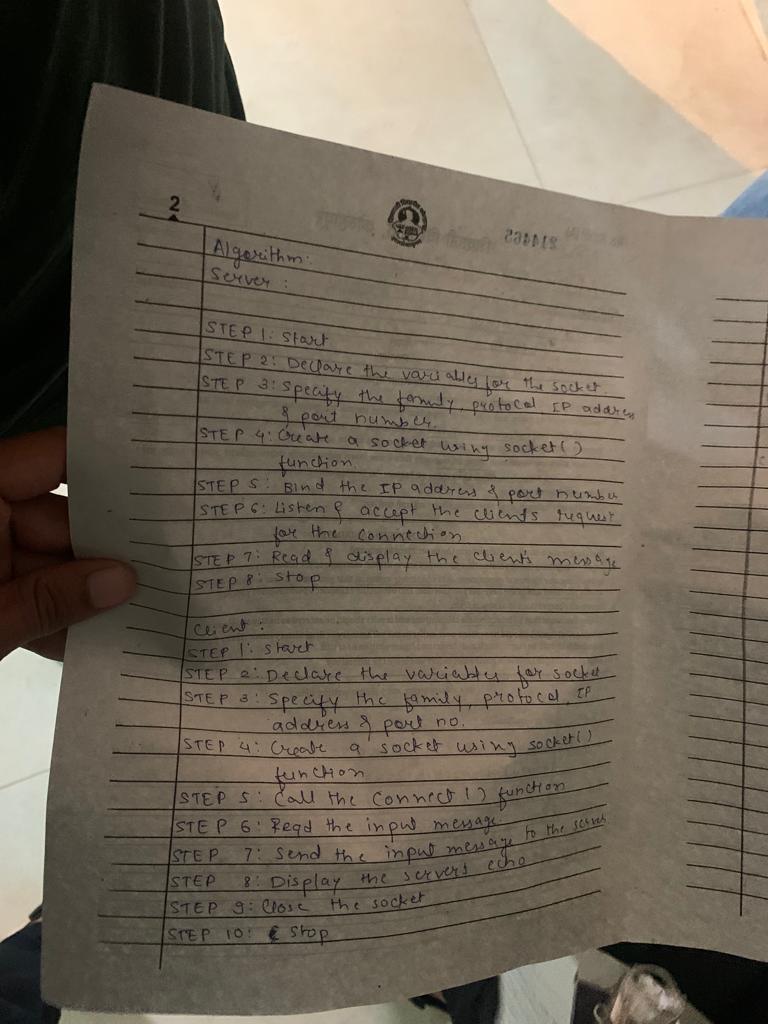 2
214465
Algorithm:
Server :
STEP 1: Start
STEP 2: Declare the variables for the socket.
STEP 3: Specify the family, protocol IP address
& port number.
STEP 4: Create a socket using socket()
function.
STEP 5: Bind the IP address & port number
STEP 6: Listen & accept the clients request
for the connection
STEP 7: Read & display the client's message
STEP 8: Stop
Client :
STEP 1: Start
STEP 2: Declare the variables for socket
STEP 3: Specify the family, protocol, IP
address & port no.
STEP 4: Create a socket using socket()
function
STEP 5: Call the connect() function
STEP 6: Read the input message
STEP 7: Send the input message to the server
STEP 8: Display the servers echo
STEP 9: Close the socket
STEP 10: Stop